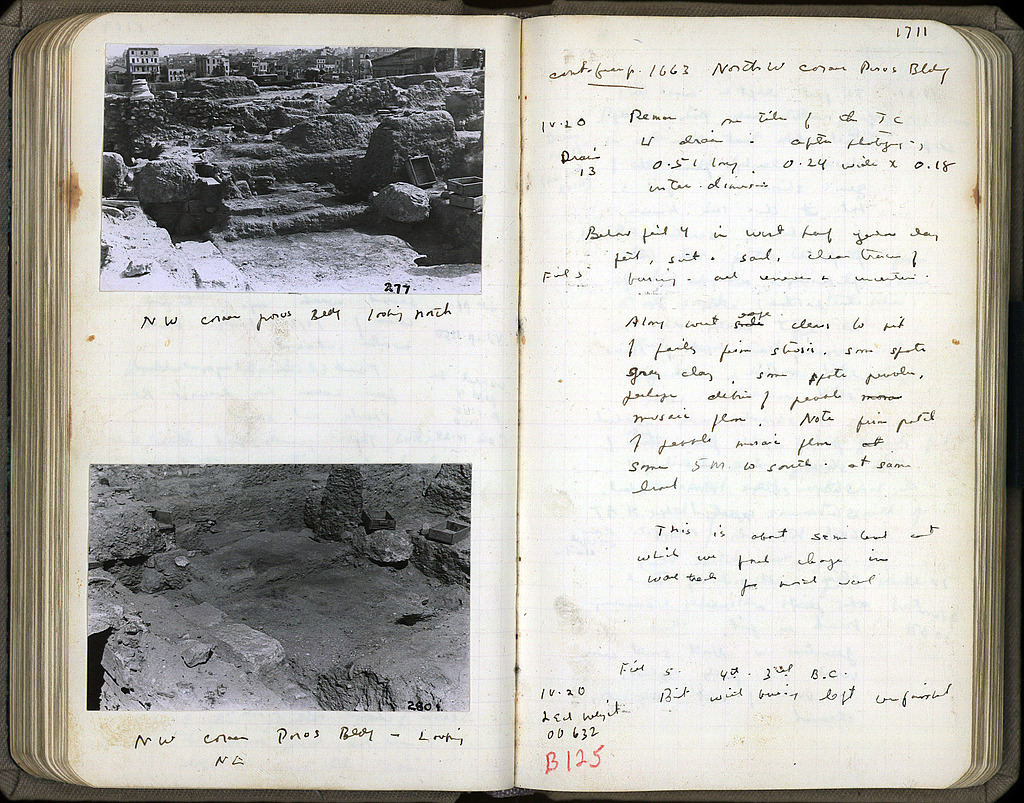 277
NW corner poros Bldg looking north
2801
NW corner Poros Bldg - Looking
NE
1711
cont. from p. 1663 North W corner Poros Bldg
IV.20 Remove one tile of the TC
Drain W drain. after photog.,
13 0.51 long 0.24 wide x 0.18
inter. dimensions
Below fill 4 in west half yellow clay
fill, soil, clear traces of
Fill 5 burning. all removed
Along west edge clear to
of some spots
gray clay, some spots pebbles,
perhaps debris of pebble
mosaic floor. Note firm patch
of pebble mosaic floor
some 5 M. to south. at same
level
This is about same level at
which we find change in
for west wall
Fill 5. 4th-3rd B.C.
IV.20 But with left unfinished
Lead weight
OO 632
B125